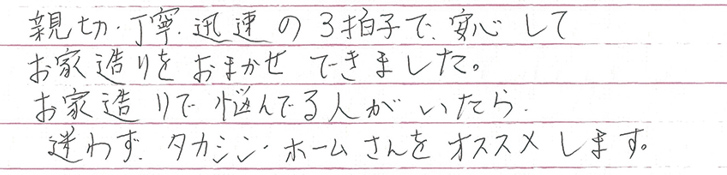 親切・丁寧・迅速の3拍子で、安心して
お家造りをおまかせできました。
お家造りで悩んでる人がいたら、
迷わず、タカシン・ホームさんをオススメします。